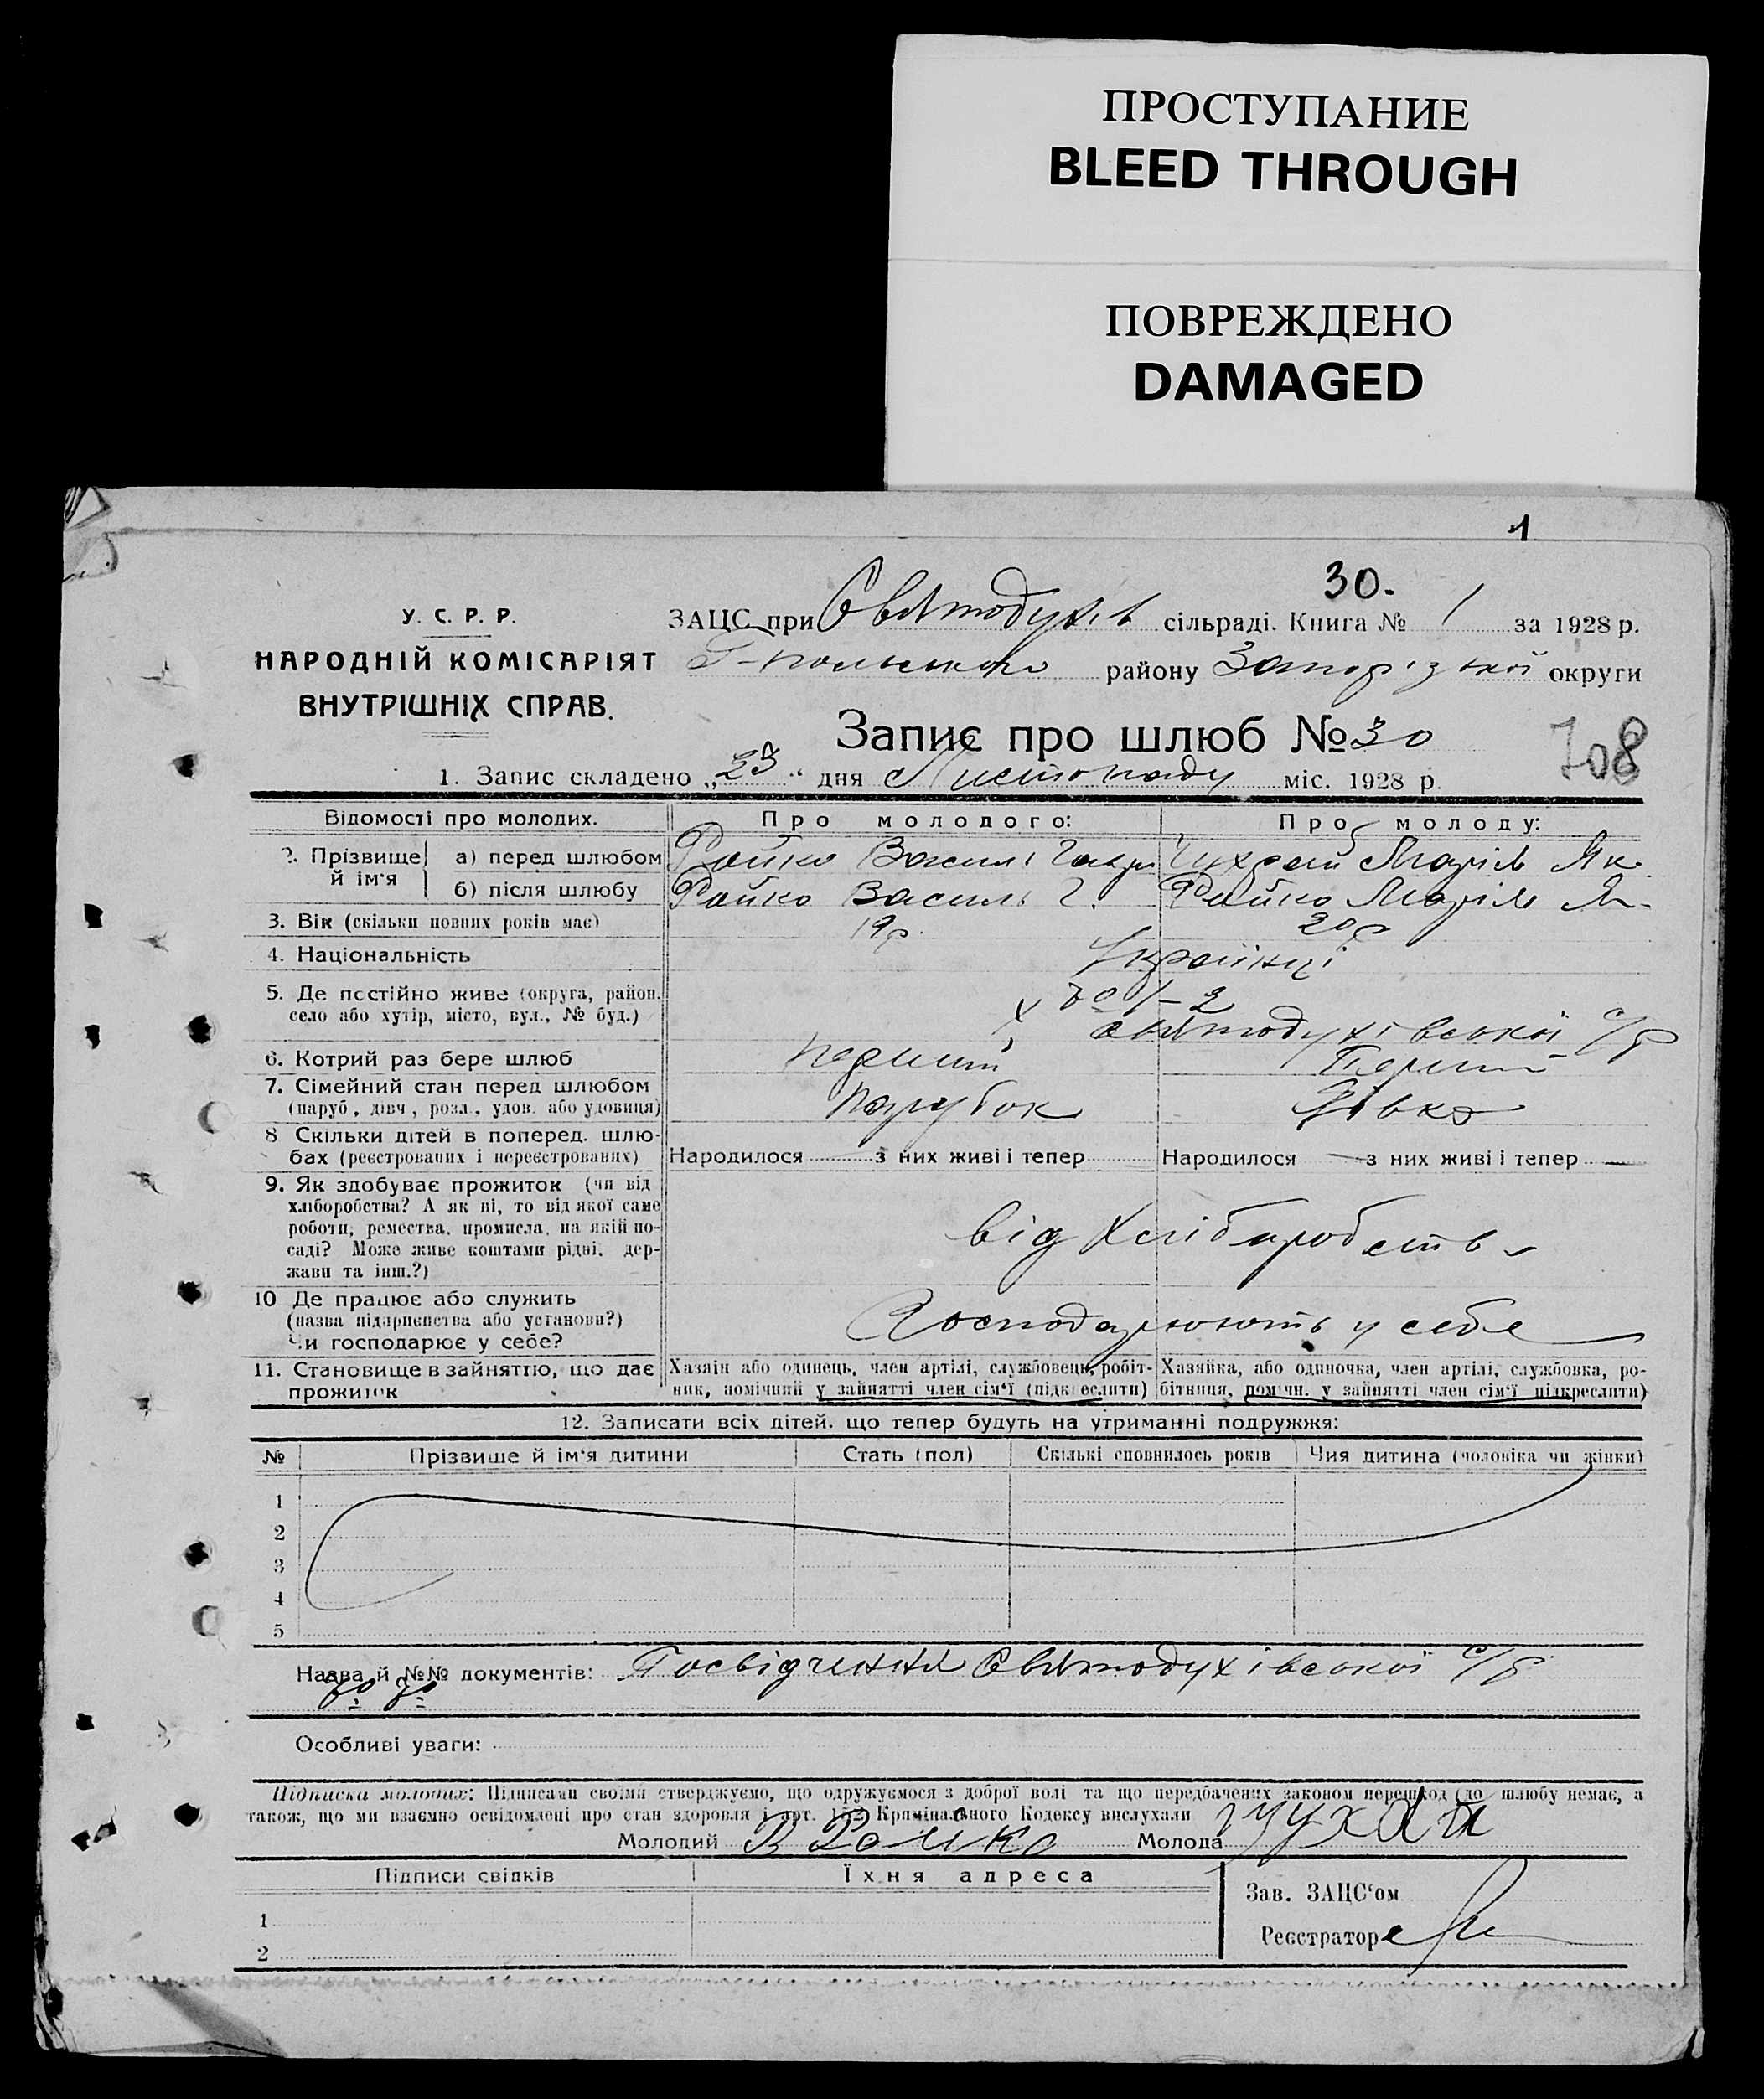 ПРОСТУПАНИЕ
BLEED THROUGH
ПОВРЕЖДЕНО
DAMAGED
1
30.
У. С. Р. Р.
НАРОДНІЙ КОМІСАРІЯТ
ВНУТРІШНІХ СПРАВ.
ЗАЦС при Святодухів сільраді. Книга № 1 за 1928 р.
району Запорізької округи
Запис про шлюб № 30
708
1. Запис складено „23" дня Листопаду міс. 1928 р.
Відомості про молодих. Про молодого: Про молоду:
2. Прізвище й ім'я а) перед шлюбом Райко Василь Гавр Чухрай Марія Як.
б) після шлюбу Райко Василь Г. Райко Марія Я.
3. Вік (скільки повних років має) 19р. 20р
4. Національність Українці
5. Де постійно живе (округа, район,
село або хутір, місто, вул., № буд.) Святодухівської с/р
6. Котрий раз бере шлюб перший Перш
7. Сімейний стан перед шлюбом
(паруб, дівч, розл., удов. або удовиця) парубок дівка
8 Скільки дітей в поперед. шлю-
бах (реєстрованих і нереєстрованих) Народилося з них живі і тепер Народилося — з них живі і тепер —
9. Як здобуває прожиток (чи від
хліборобства? А як ні, то від якої саме
роботи, ремества, промисла, на якій по-
саді? Може живе коштами рідні, дер-
жави та інш.?) від Хліборобств
10 Де працює або служить
(назва підприємства або установи?)
Чи господарює у себе? Господарюють у себе
11. Становище в зайняттю, що дає
прожиток
Хазяїн або одинець, член артілі, службовець, робіт-
ник, помічний у зайнятті член сім'ї (підкреслити)
Хазяйка, або одиночка, член артілі, службовка, ро-
бітниця, помічн. у зайнятті член сім'ї підкреслити)
12. Записати всіх дітей, що тепер будуть на утриманні подружжя:
№ Прізвище й ім'я дитини Стать (пол) Скількі сповнилось років Чия дитина (чоловіка чи жінки)
1
2
3
4
5
Назва й №№ документів: Посвідчення Святодухівської с/р
Особливі уваги:
Підписка молодих: Підписами своїми стверджуємо, що одружуємося з доброї волі та що передбачених законом перешкод до шлюбу немає, а
також, що ми взаємно освідомлені про стан здоровля і арт. 152 Кримінального Кодексу вислухали
Молодий В Райко Молода Чухрай
Підписи свідків Їхня адреса
Зав. ЗАЦС'ом
1
Реєстратор
2